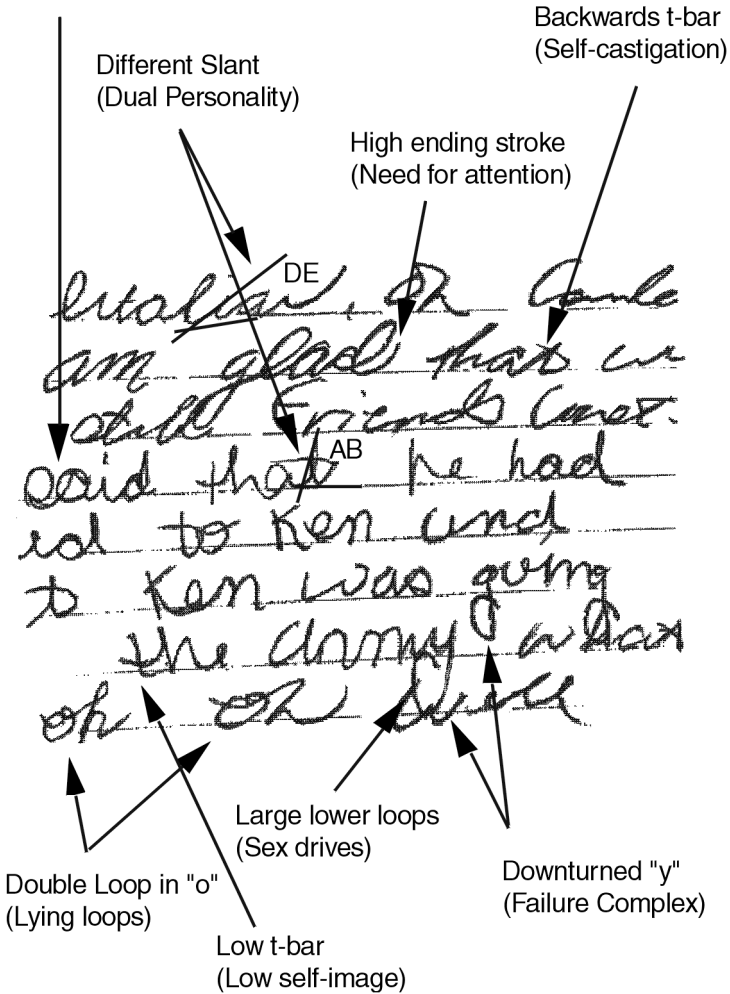 Backwards t-bar
(Self-castigation)
Different Slant
(Dual Personality)
High ending stroke
(Need for attention)
DE
am glad that
Friends
AB
said that he had
to Ken and
to Ken was going
the army what
oh oh well
Large lower loops
(Sex drives)
Downturned "y"
(Failure Complex)
Double Loop in "o"
(Lying loops)
Low t-bar
(Low self-image)